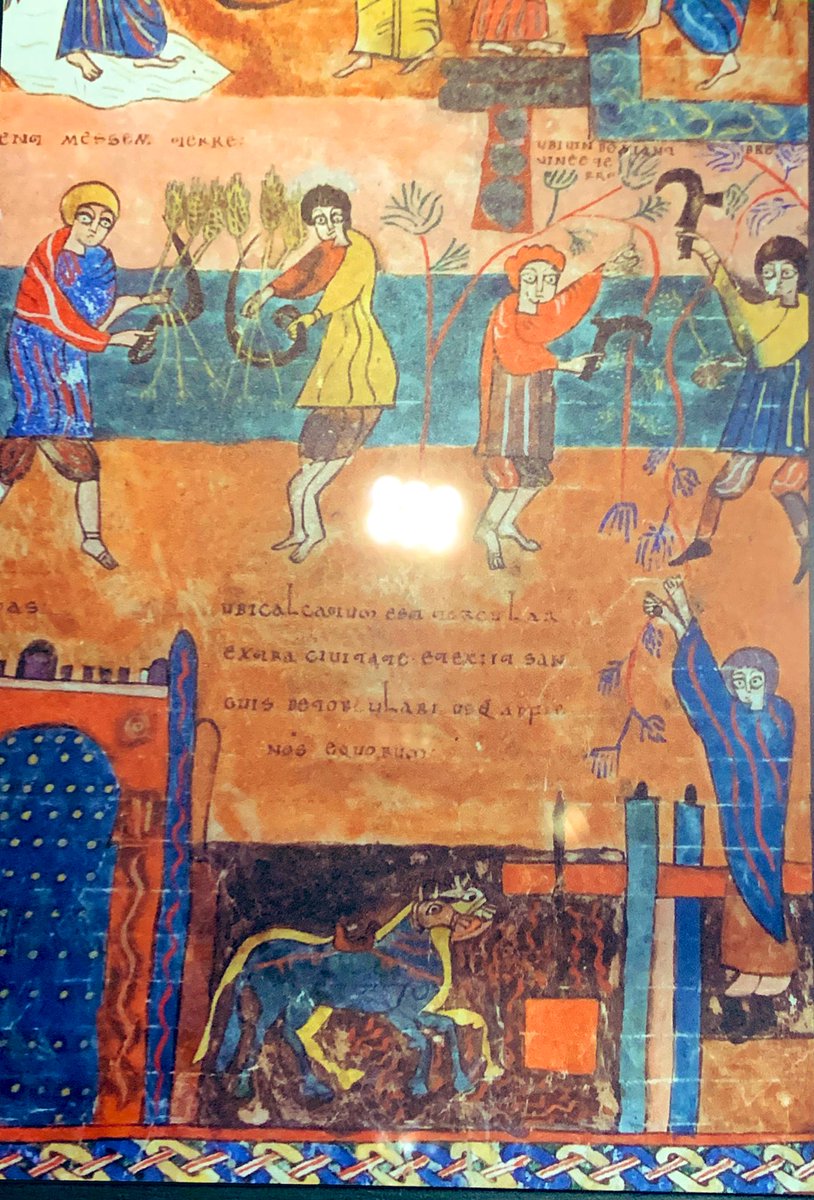 MESSEM TERRE:
UBI
UINEE TE
UBI CALCATUM EST TORCULAR
EXTRA CIUITATE ET EXIIT SAN
GUIS DE TORCULARI USQ
NOS EQUORUM